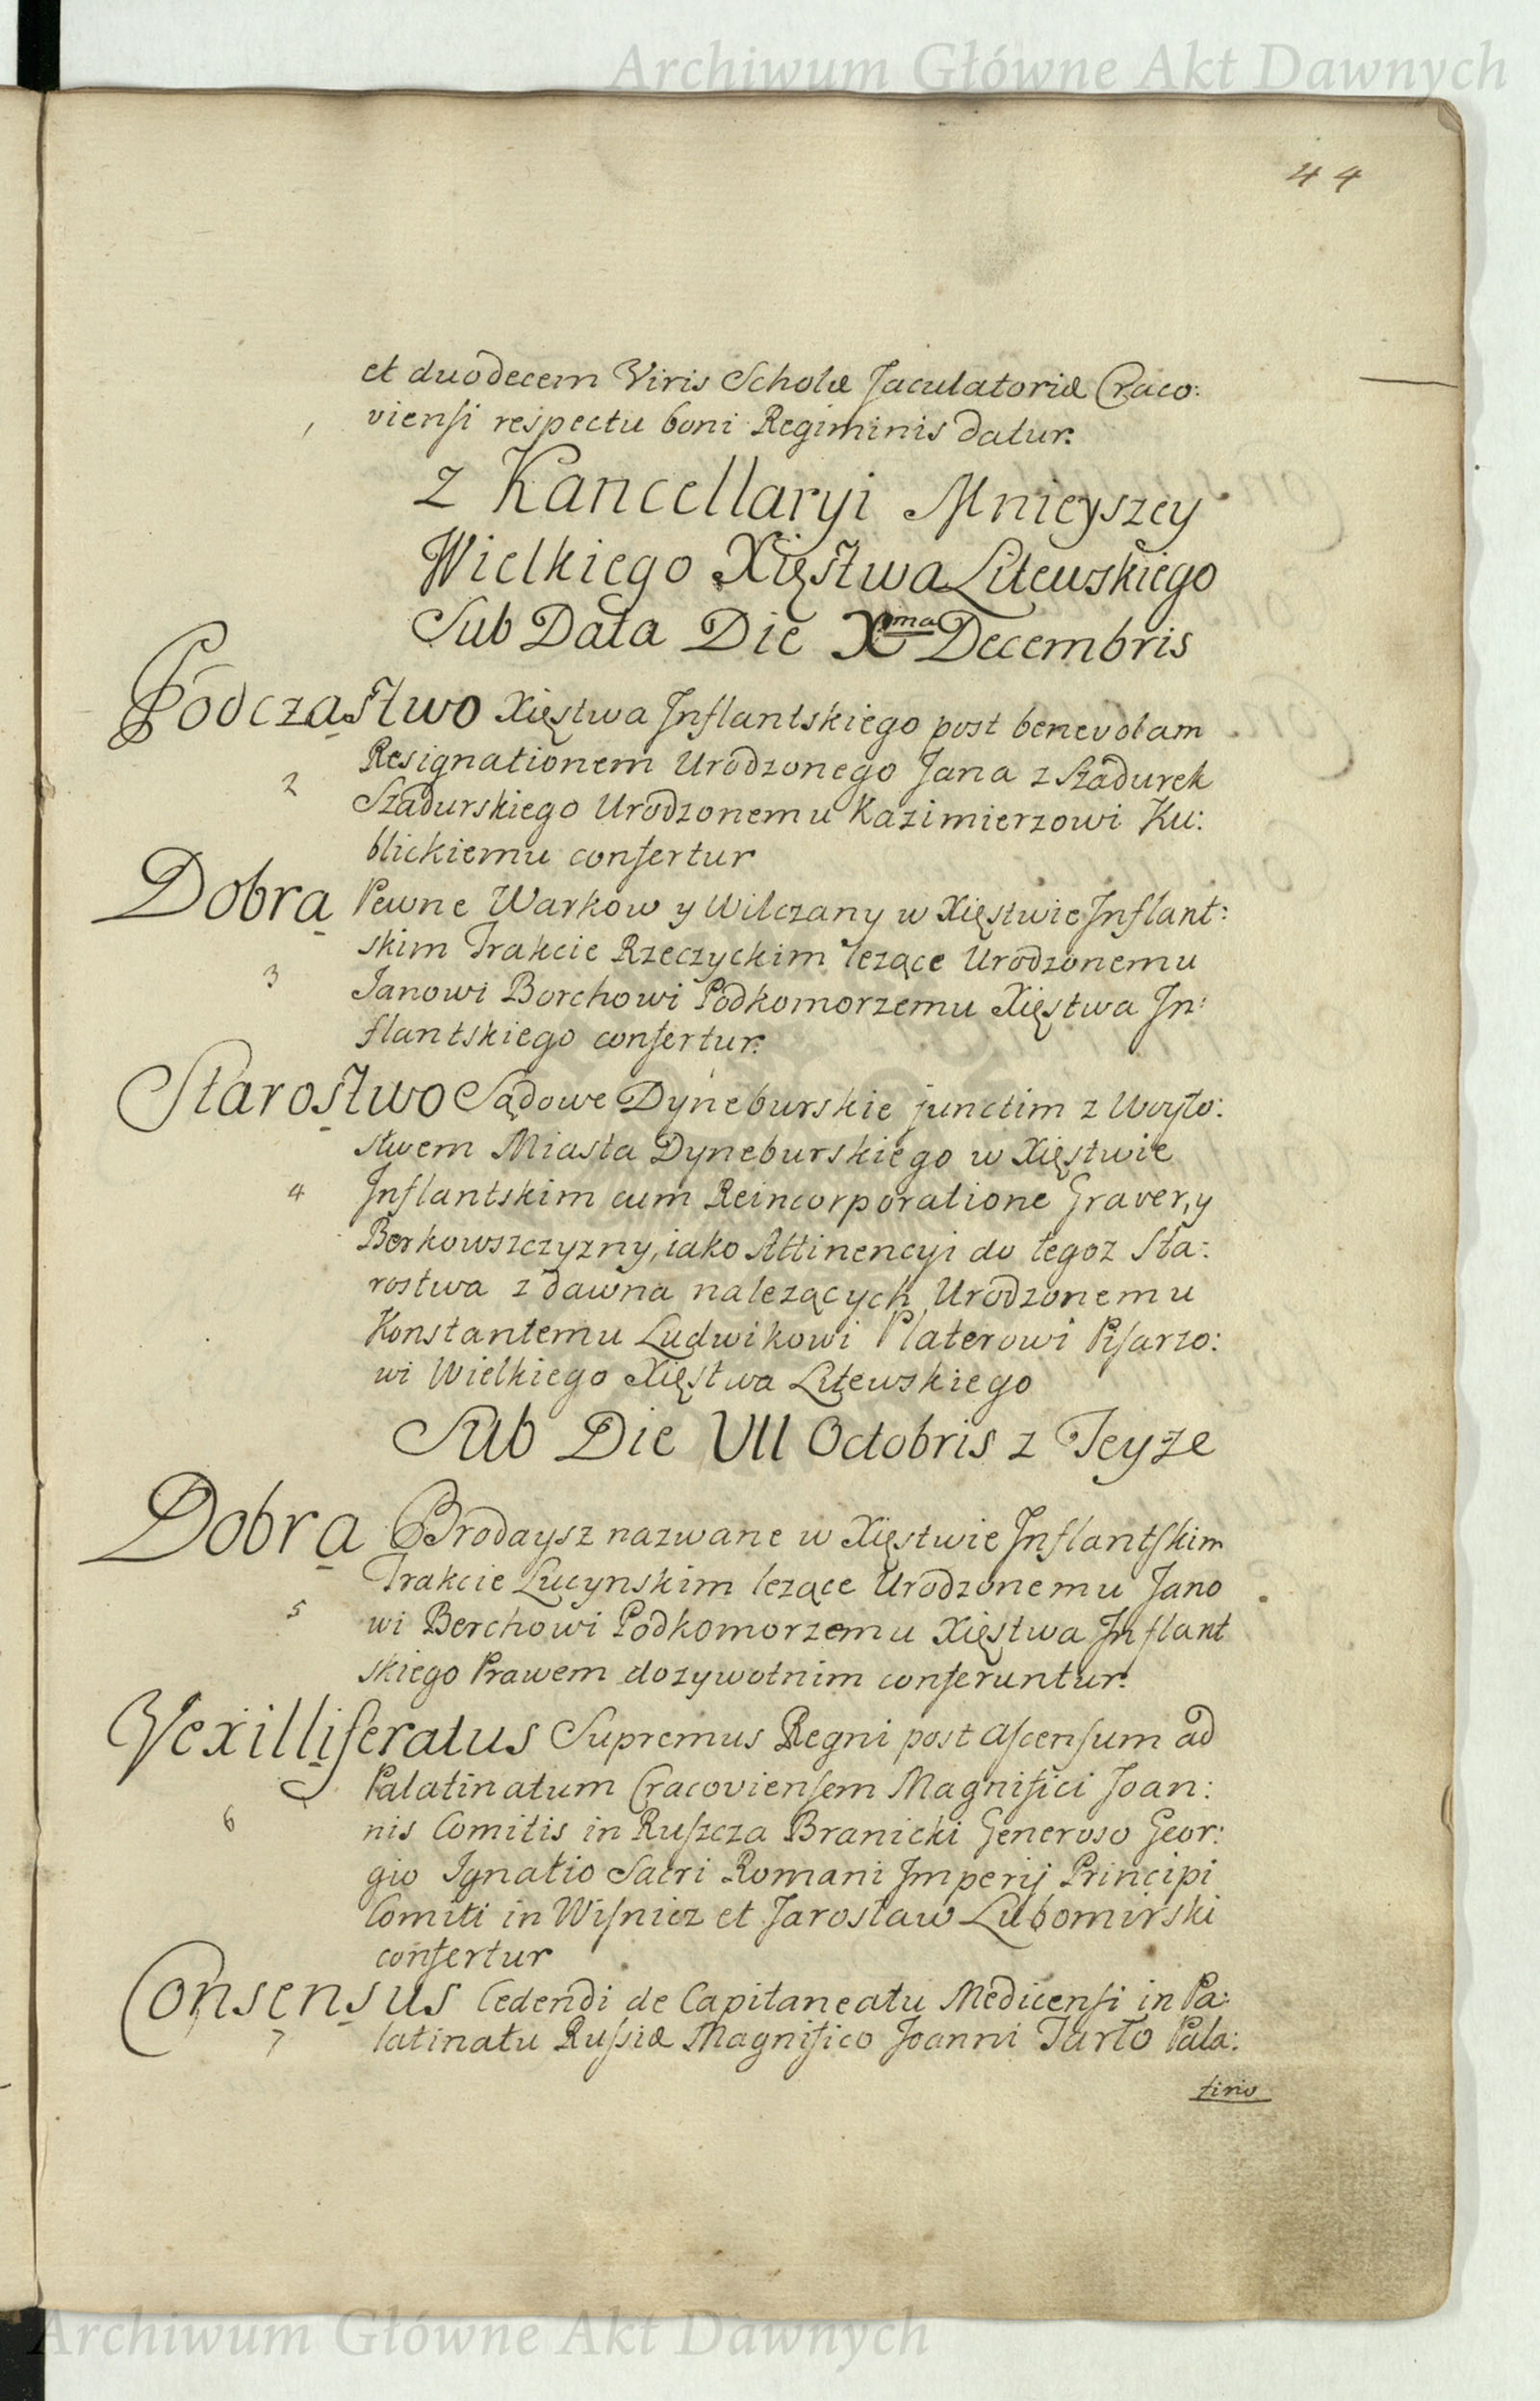 Archiwum Główne Akt Dawnych
44
et duodecem Viris Scholæ Jaculatoriæ Craco:
1 viensi respectu boni Regiminis datur.
z Kancellaryi Mnieyszey
Wielkiego Xięstwa Litewskiego
Sub Data Die X ma Decembris
Podczastwo Xięstwa Inflantskiego post benevolam
Resignationem Urodzonego Jana z Szadurek
2 Szadurskiego Urodzonemu Kazimierzowi Ku:
blickiemu confertur
Dobra Pewne Warkow y Wilczany w Xięstwie Inflant:
skim Trakcie Rzeczyckim lezące Urodzonemu
3 Janowi Borchowi Podkomorzemu Xięstwa In:
flantskiego confertur.
Starostwo Sądowe Dyneburskie junctim z Woyto:
stwem Miasta Dyneburskiego w Xięstwie
4 Inflantskim cum Reincorporatione Graver, y
Berkowszczyzny, iako Attinencyi do tegoz Sta:
rostwa z dawna nalezących Urodzonemu
Konstantemu Ludwikowi Platerowi Pisarzo:
wi Wielkiego Xięstwa Litewskiego
Sub Die VII Octobris z Teyze
Dobra Brodaysz nazwane w Xięstwie Inflantskim
Trakcie Lucynskim lezące Urodzonemu Jano
5 wi Berchowi Podkomorzemu Xięstwa Inflant
skiego Prawem dozywotnim conferuntur.
Vexilliferatus Supremus Regni post ascensum ad
Palatinatum Cracoviensem Magnifici Joan:
6 nis Comitis in Ruszcza Branicki Generoso Geor:
gio Ignatio Sacri Romani Imperij Principi
Comiti in Wisnicz et Jarosław Lubomirski
confertur
Consensus Cedendi de Capitaneatu Medicensi in Pa:
7 latinatu Russiæ Magnifico Joanni Tarło Pala:
tino
Archiwum Główne Akt Dawnych